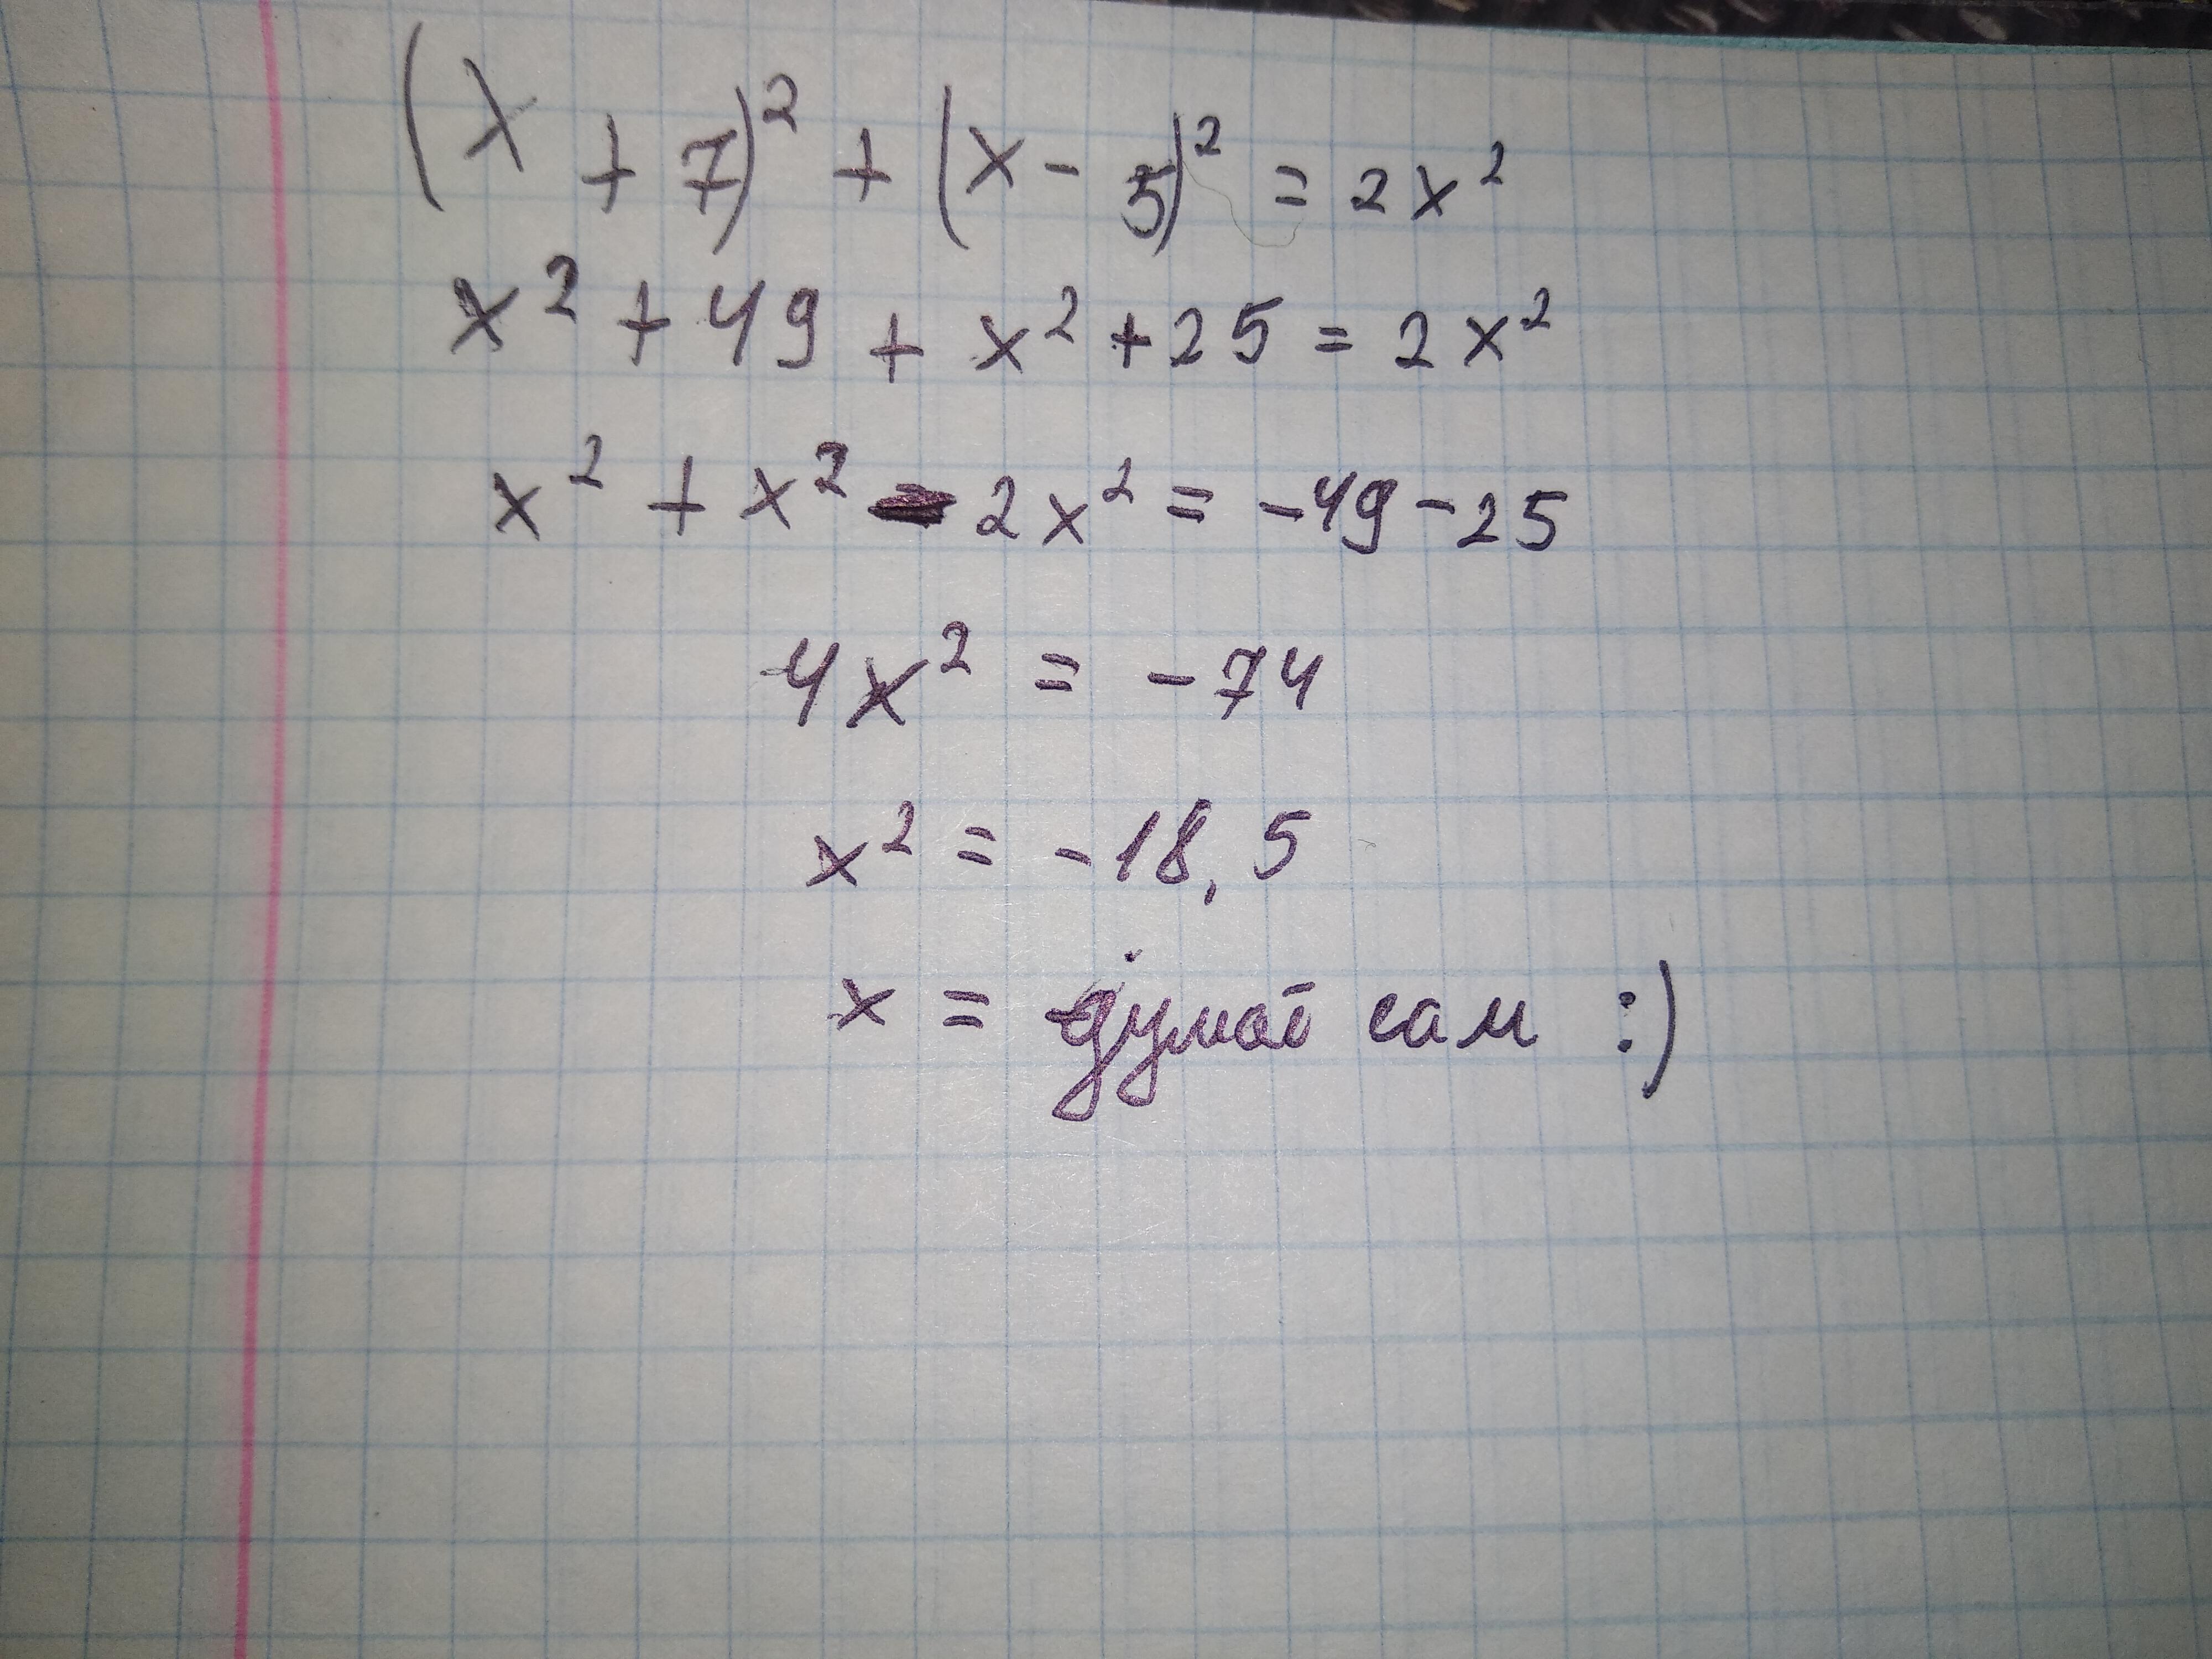 (x + 7)² + (x - 5)² = 2x²
x² + 49 + x² + 25 = 2x²
x² + x² - 2x² = -49 - 25
4x² = -74
x² = -18,5
x = думай сам :)